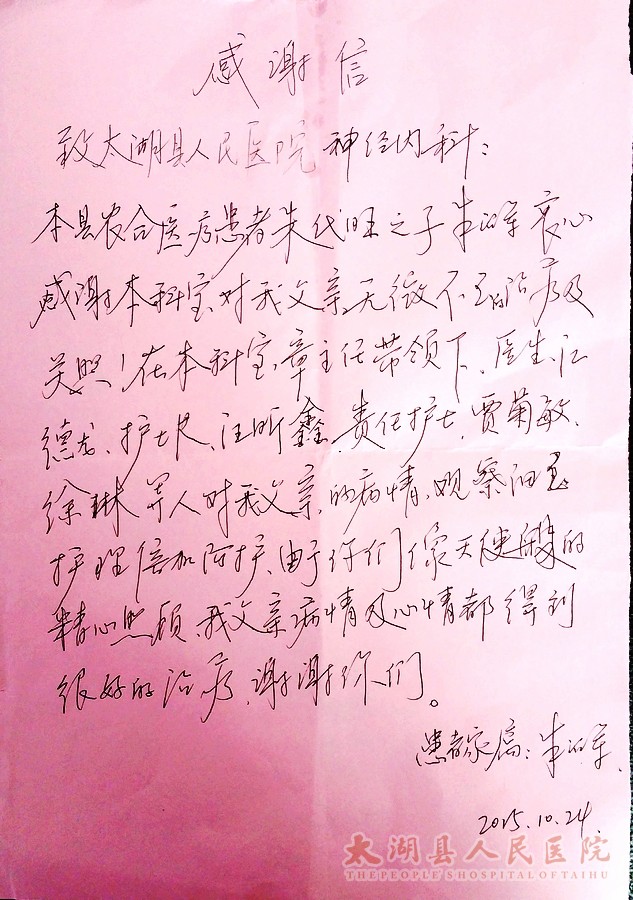 感谢信
致太湖县人民医院神经内科:
本县农合医疗患者朱代旺之子朱 军衷心
感谢本科室对我父亲无微不至的治疗及
关照!在本科室章主任带领下、医生江
德龙、护士长、汪昕鑫、责任护士、贾菊敏、
徐琳等人对我父亲的病情、观察细至
护理倍加呵护、由于你们像天使般的
精心照顾、我父亲病情及心情都得到
很好的治疗、谢谢你们。
患者家属:朱 军
2015.10.24.
太湖县人民医院
THE PEOPLE'S HOSPITAL OF TAIHU